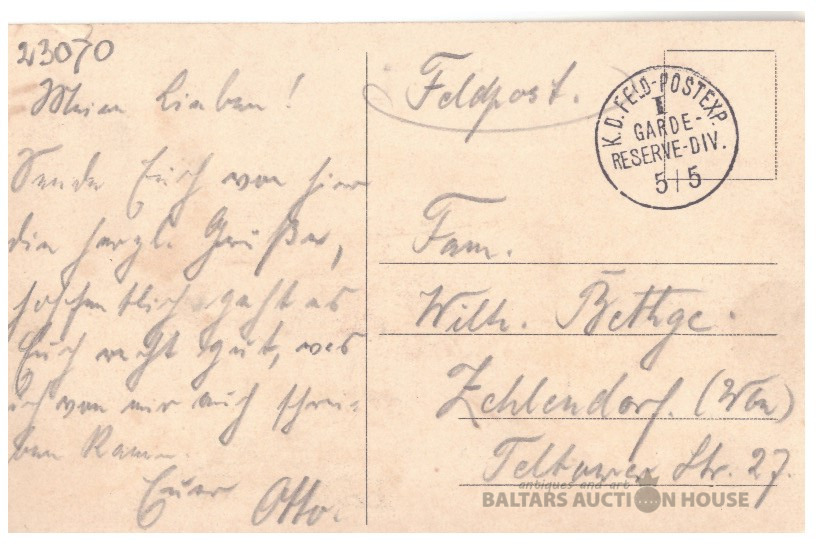 23070
Meine Lieben!
Sende Euch von hier
die herzl. Grüße,
hoffentlich geht es
Euch recht gut, was
ich von mir auch schrei-
ben kann.
Euer Otto.
Feldpost.
K.D. FELD-POSTEXP.
I
GARDE-
RESERVE-DIV.
5/5
Fam.
Wilh. Bethge.
Zehlendorf. (Wbn)
Teltower Str. 27.
antiques and art
BALTARS AUCTION HOUSE